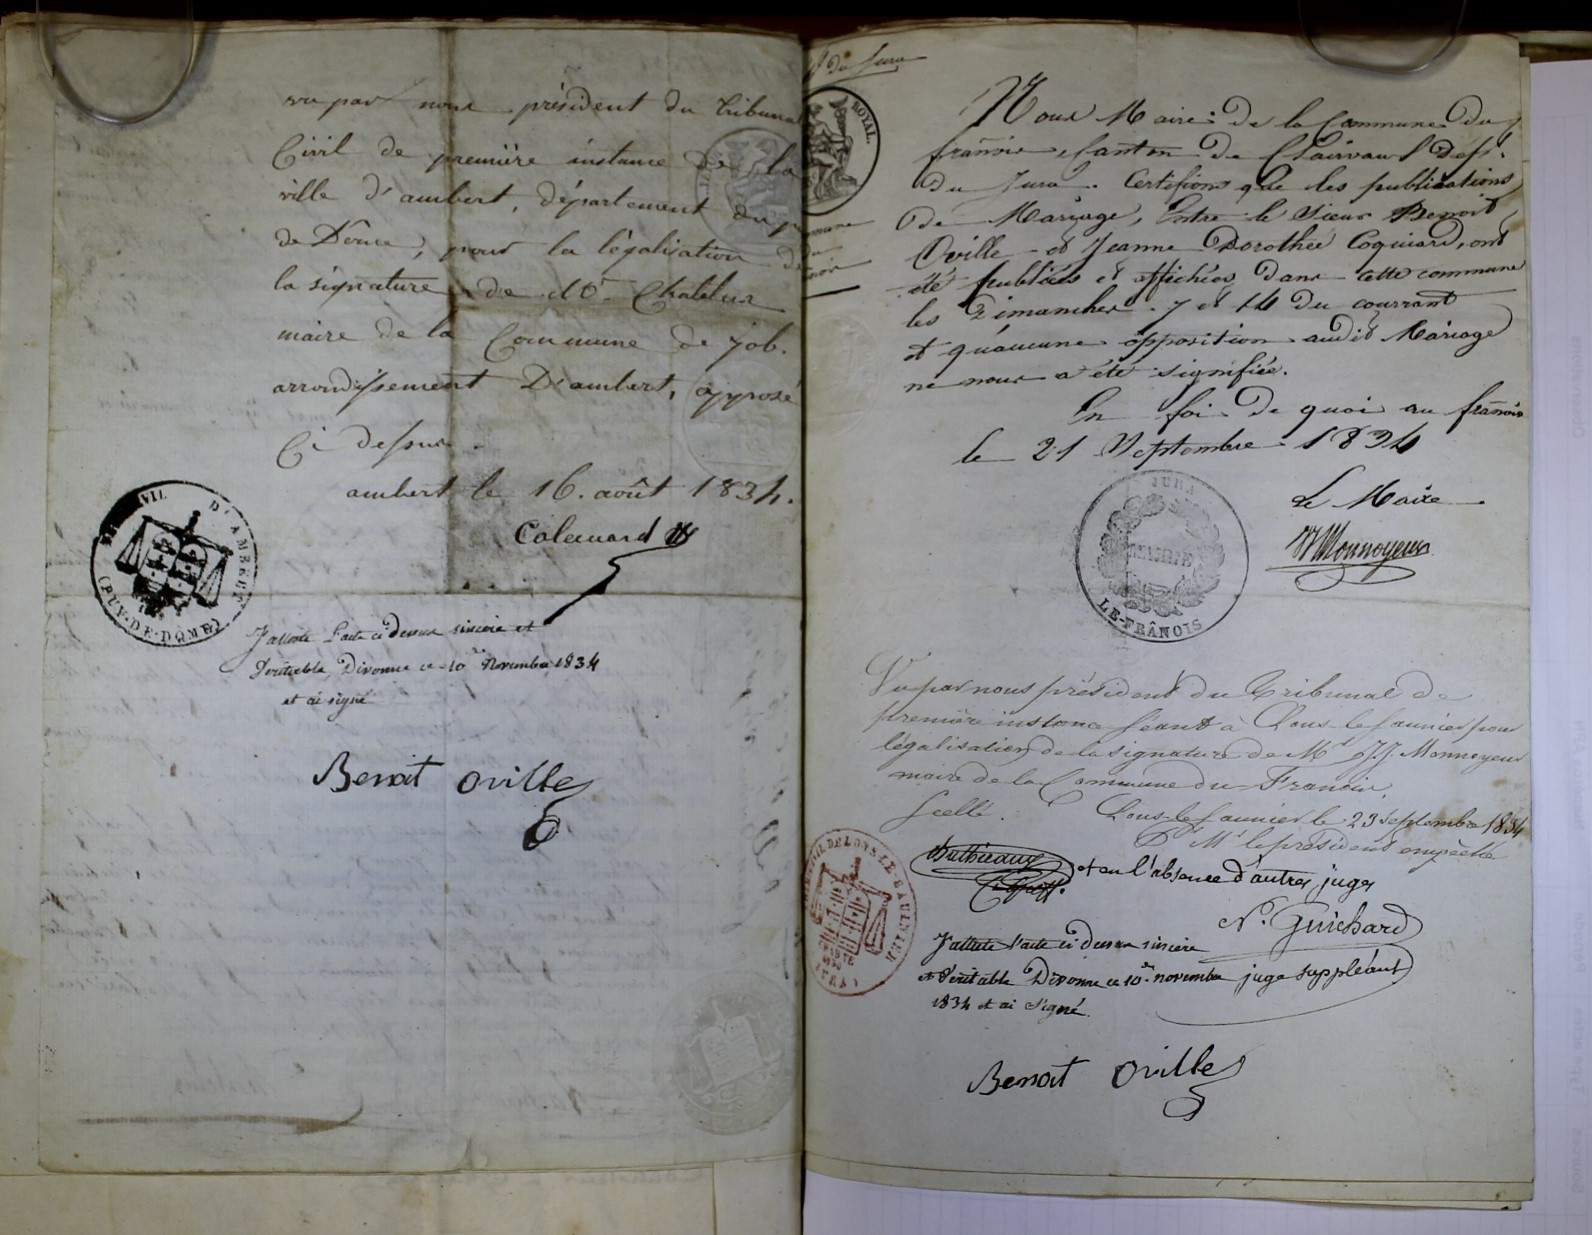 vu par nous président du tribunal
Civil de première instance de la
ville d'ambert, département du puy
de Dôme, pour la légalisation de
la signature de Mr. Chatelus
maire de la Commune de job.
arrondissement D'ambert, apposé
Ci dessus.
ambert le 16. août 1834.
Calemard
CIVIL D'AMBERT
(PUY-DE-DÔME)
J'atteste l'acte ci dessus sincère et
Veritable, Divonne ce 10 Novembre 1834
et ai signé
Benoit Oville
du Jura
ROYAL.
Nous Maire de la Commune du
franois, Canton de Clairvaux Dept.
du Jura. Certifions que les publications
de Mariage, Entre le Sieur Benoit
Oville et Jeanne Dorothée Coquiard, ont
été publiées et affichées dans cette commune
les Dimanches 7 et 14 du courrant
et qu'aucune opposition audit Mariage
ne nous a été signifiée.
En foi de quoi au franois
le 21 Septembre 1834
Le Maire
JJ Monnoyeur
JURA
MAIRIE
LE-FRÂNOIS
Vu par nous président du Tribunal de
première instance séant à Lons-le-saunier pour
légalisation de la signature de Mr. J.J. Monnoyeur
maire de la Commune du Franois.
Scellé. Lons-le-saunier le 23 septembre 1834
Pr Mr le président empêché
et en l'absence d'autres juges
N. Guichard
juge suppléant
DE LONS-LE-SAULNIER
(JURA)
J'atteste l'acte ci dessus sincère
et Veritable Divonne ce 10 novembre
1834 et ai signé.
Benoit Oville